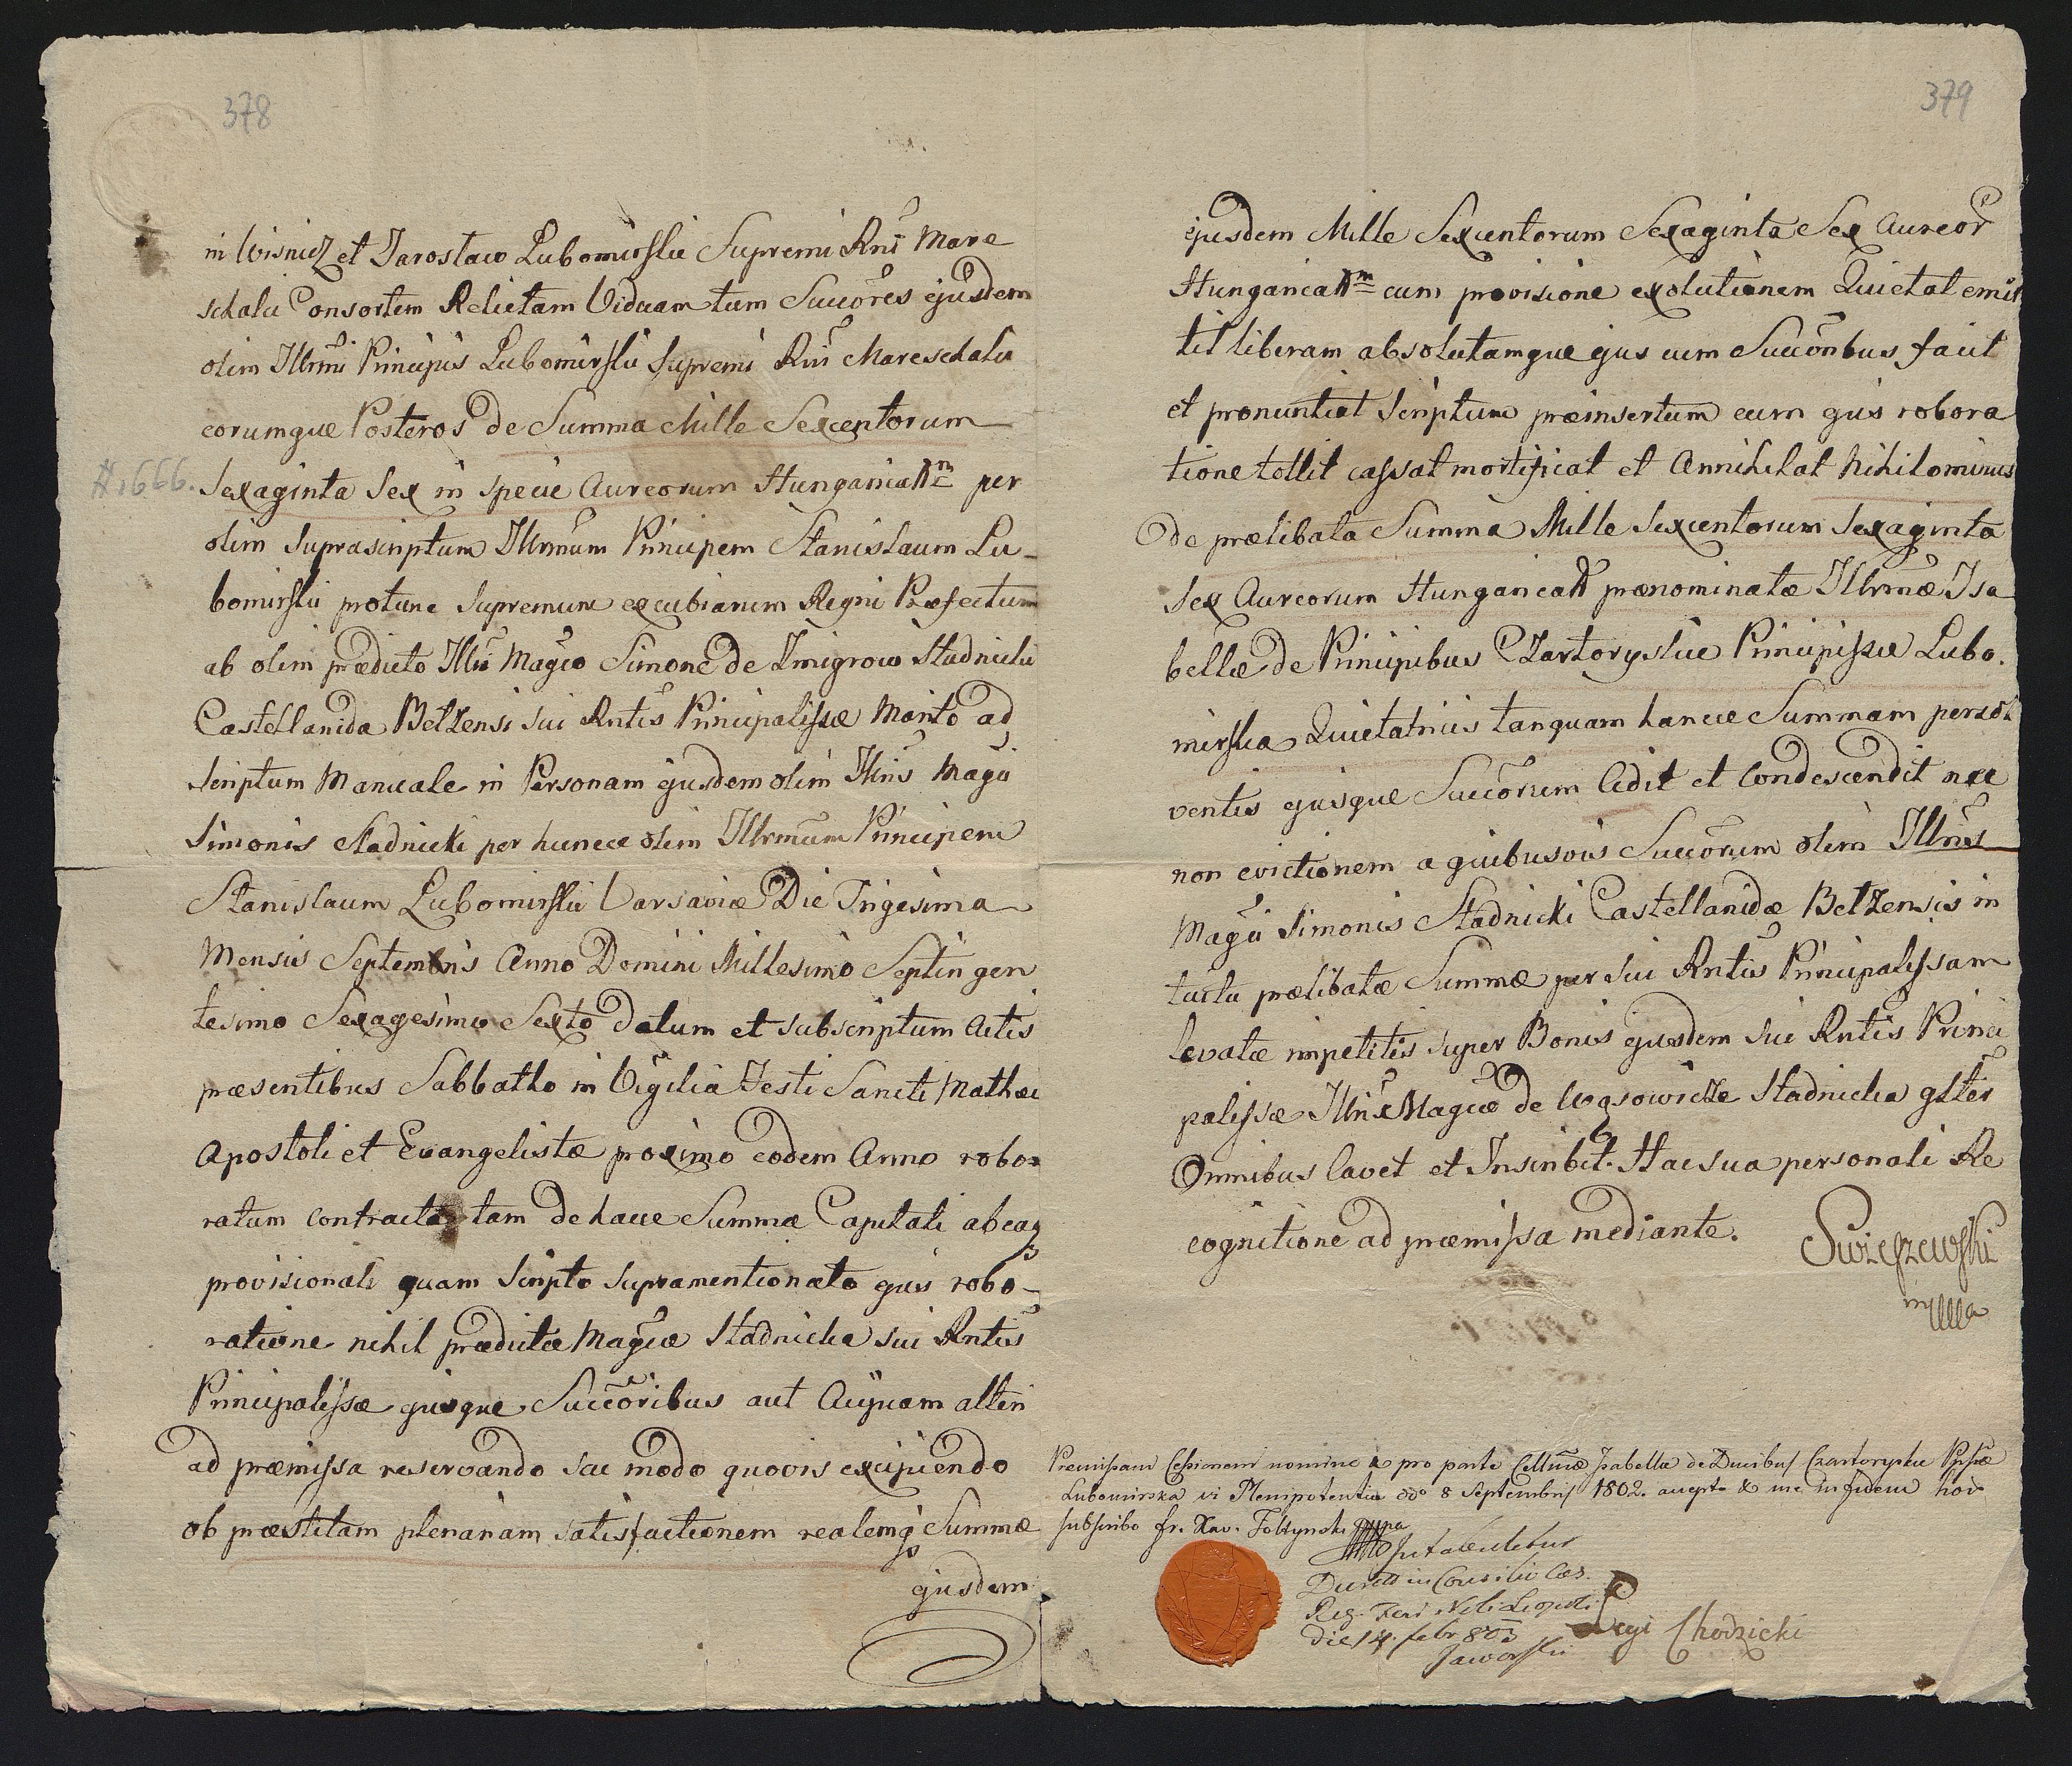 378
in Wisnicz et Jaroslaw Lubomirskii Supremi Rni Mare
schalci Consortem Relictam Viduam tum Succōres ejusdem
olim Illrmi Principis Lubomirskii Supremi Rni Mareschalci
eorumque Posteros de Summa Mille Sexcentorum
# 1666. Sexaginta Sex in specie Aureorum Hungarical͞m per
olim suprascriptum Illrmum Principem Stanislaum Lu-
bomirskii protunc Supremum excubiarum Regni Præfectum
ab olim prædicto Illri Magco Simone de Zmigrow Stadnicki
Castellanida Belzensi sui Rntis Principalissæ Marito ad
scriptum Manuale in Personam ejusdem olim Illris Magci
Simonis Stadnicki per huncce olim Illrmum Principem
Stanislaum Lubomirskii Varsaviæ Die Trigesima
Mensis Septembris Anno Domini Millesimo Septingen
tesimo Sexagesimo Sexto datum et subscriptum actis
præsentibus Sabbatho in Vigilia Festi Sancti Mathæi
Apostoli et Evangelistæ proximo eodem Anno robo-
ratum contracta tam de hacce Summa Capitali ab eaq
provisionali quam Scripto supramentionato ejus robo-
ratione nihil prædictæ Magcæ Stadnicka sui Rntis
Principalissæ ejusque Succōribus aut Cuiquam alteri
ad præmissa reservando seu modo quovis excipiendo
ob præstitam plenariam satisfactionem realemq Summæ
ejusdem
379
ejusdem Mille Sexcentorum Sexaginta Sex Aureor
Hungarical͞m cum provisione exolutionem Quietat emit
tit liberam absolutamque ejus cum Succōribus facit
et pronuntiat Scriptum præinsertum cum ejus robora
tione tollit cassat mortificat et Annihilat Nihilominus
de prælibata Summa Mille Sexcentorum Sexaginta
Sex Aureorum Hungarical prænominatæ Illrmæ Isa
bellæ de Principibus Czartoryskie Principissæ Lubo.
mirska Quietatricis tanquam hancce Summam persol
ventis ejusque Succōrum Cedit et Condescendit nec
non evictionem a quibusvis Succōrum olim Illris
Magci Simonis Stadnicki Castellanidæ Belzensis in
tuitu prælibatæ Summæ per sui Rntis Principalissam
levatæ impetitis super Bonis ejusdem sui Rntis Princi
palissæ Illris Magcæ de Wąsowicze Stadnicka gltes
Omnibus Cavet et Inscribit. Hac sua personali Re
cognitione ad præmissa mediante.
Swieszewski
mppa
Premissam Cessionem nomine & pro parte Cellmæ Isabellæ de Ducibus Czartoryskie Ppssæ
Lubomirska vi Plenipotentiæ ddo 8 Septembris 1802. accepto & me in fidem
subscribo Fr. Xav. Foltynski mppa
Intabuletur
in Consilio Cæs.
Reg. Fori Nob. Leopoli
die 14. febr 803
Jaworski
Legi Chodzicki